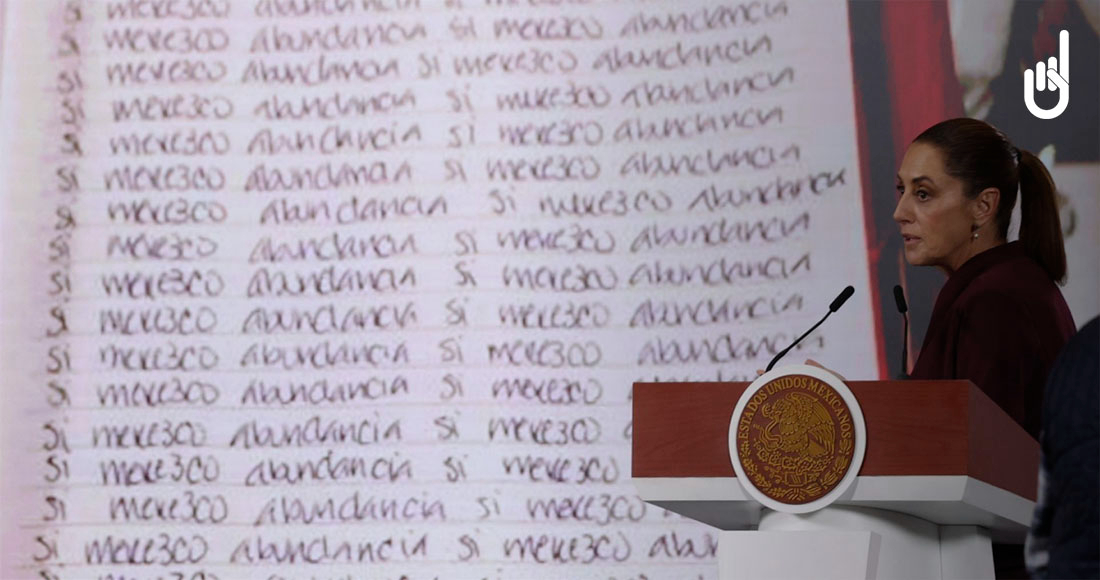 Si mere3co abundancia si mere3co abundancia
Si mere3co abundancia si mere3co abundancia
Si mere3co abundancia si mere3co abundancia
Si mere3co abundancia si mere3co abundancia
Si mere3co abundancia si mere3co abundancia
Si mere3co abundancia si mere3co abundancia
Si mere3co abundancia si mere3co abundancia
Si mere3co abundancia si mere3co abundancia
Si mere3co abundancia si mere3co abundancia
Si mere3co abundancia si mere3co abundancia
Si mere3co abundancia si mere3co
Si mere3co abundancia si mere3co
Si mere3co abundancia si mere3co
Si mere3co abundancia si mere3co
Si mere3co abundancia si mere3co
ESTADOS UNIDOS MEXICANOS